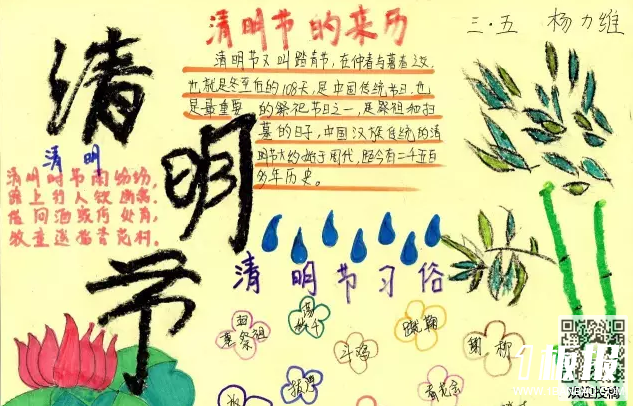 清明节的来历
三·五 杨力维
清明节又叫踏青节，在仲春与暮春之交，
也就是冬至后的108天，是中国传统节日，也
是最重要的祭祀节日之一，是祭祖和扫
墓的日子，中国汉族传统的清
明节大约始于周代，距今有二千五百
多年历史。
清明节
清明
清明时节雨纷纷，
路上行人欲断魂。
借问酒家何处有，
牧童遥指杏花村。
清明节习俗
扫墓祭祖
荡秋千
斗鸡
蹴鞠
拔河